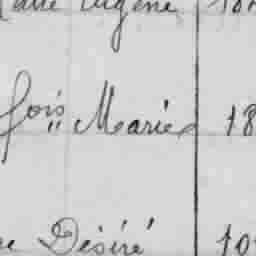 Eugène
fois Marie 18
Désiré